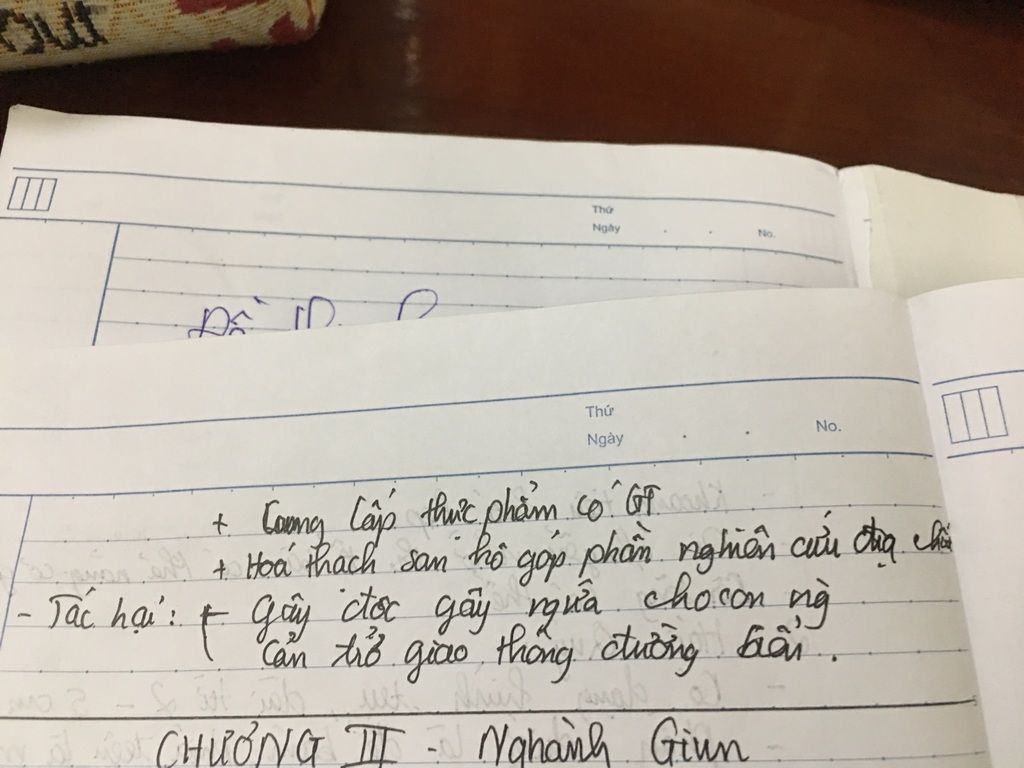 out
Thứ
Ngày . . No.
Đồ
Thứ
Ngày . . No.
+ Cung cấp thực phẩm có GT
+ Hoá thạch san hô góp phần nghiên cứu địa chất
- Tác hại: + gây độc gây ngứa cho con ng
cản trở giao thông đường biển.
CHƯƠNG III - Nghành Giun